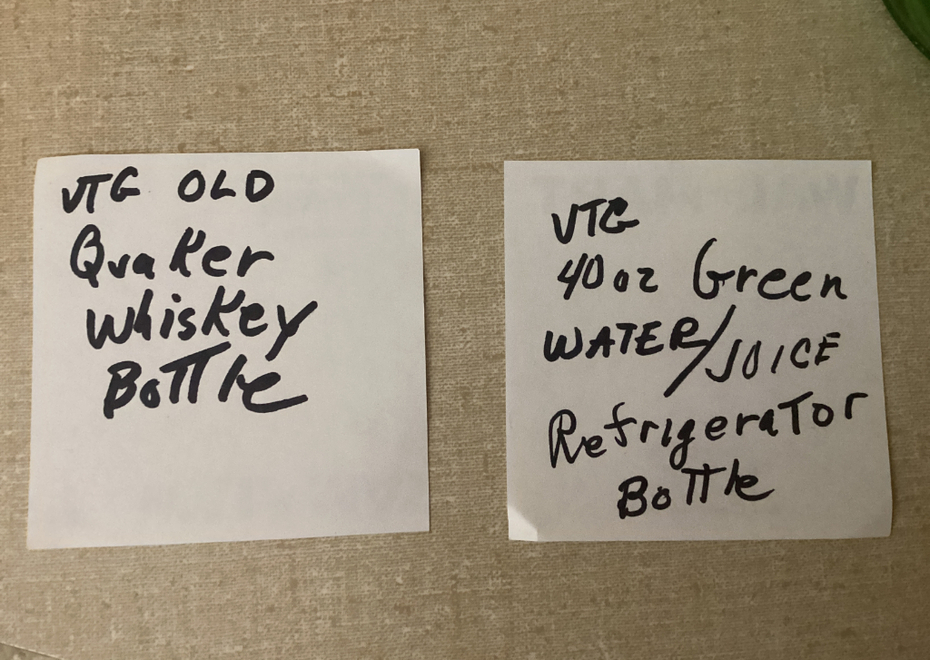 VTG OLD
Quaker
Whiskey
Bottle
VTG
40 oz Green
WATER/JUICE
Refrigerator
Bottle